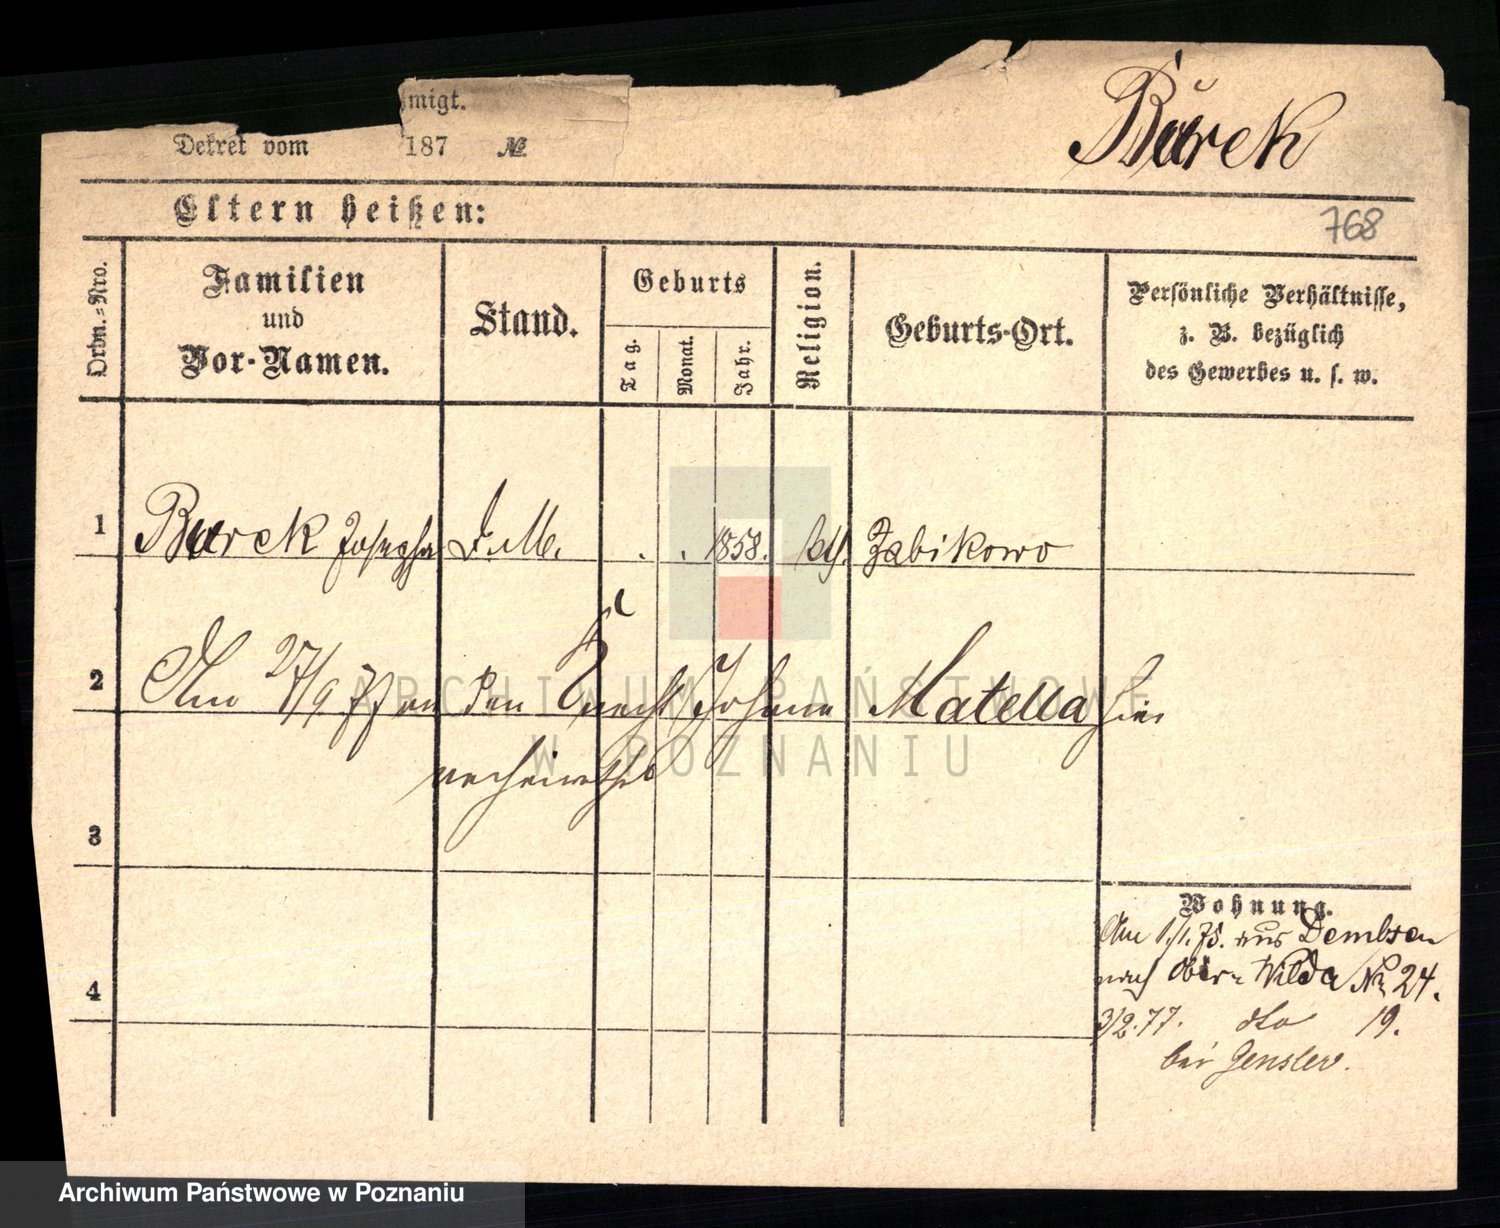 migt.
Dekret vom 187 №
Burek
Eltern heißen:
768
Ordn.-Nro.
Familien
und
Vor-Namen.
Stand.
Geburts
Tag.
Monat.
Jahr.
Religion.
Geburts-Ort.
Persönliche Verhältnisse,
z. B. bezüglich
des Gewerbes u. s. w.
1 Burek Josepha D. M. . . 1858. kth. Zabikowo
2 Am 27/9 77 an den Knecht Johann Matella hier
verheirathet
3
Wohnung.
Am 1./1. 75. aus Dembsen
nach Ober- Wilda Nr 24.
4
3/2. 77. dto 19.
bei Gensler.
ARCHIWUM PAŃSTWOWE
W POZNANIU
Archiwum Państwowe w Poznaniu